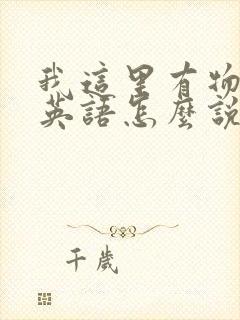 我這里有物
英語怎麼說
千歲